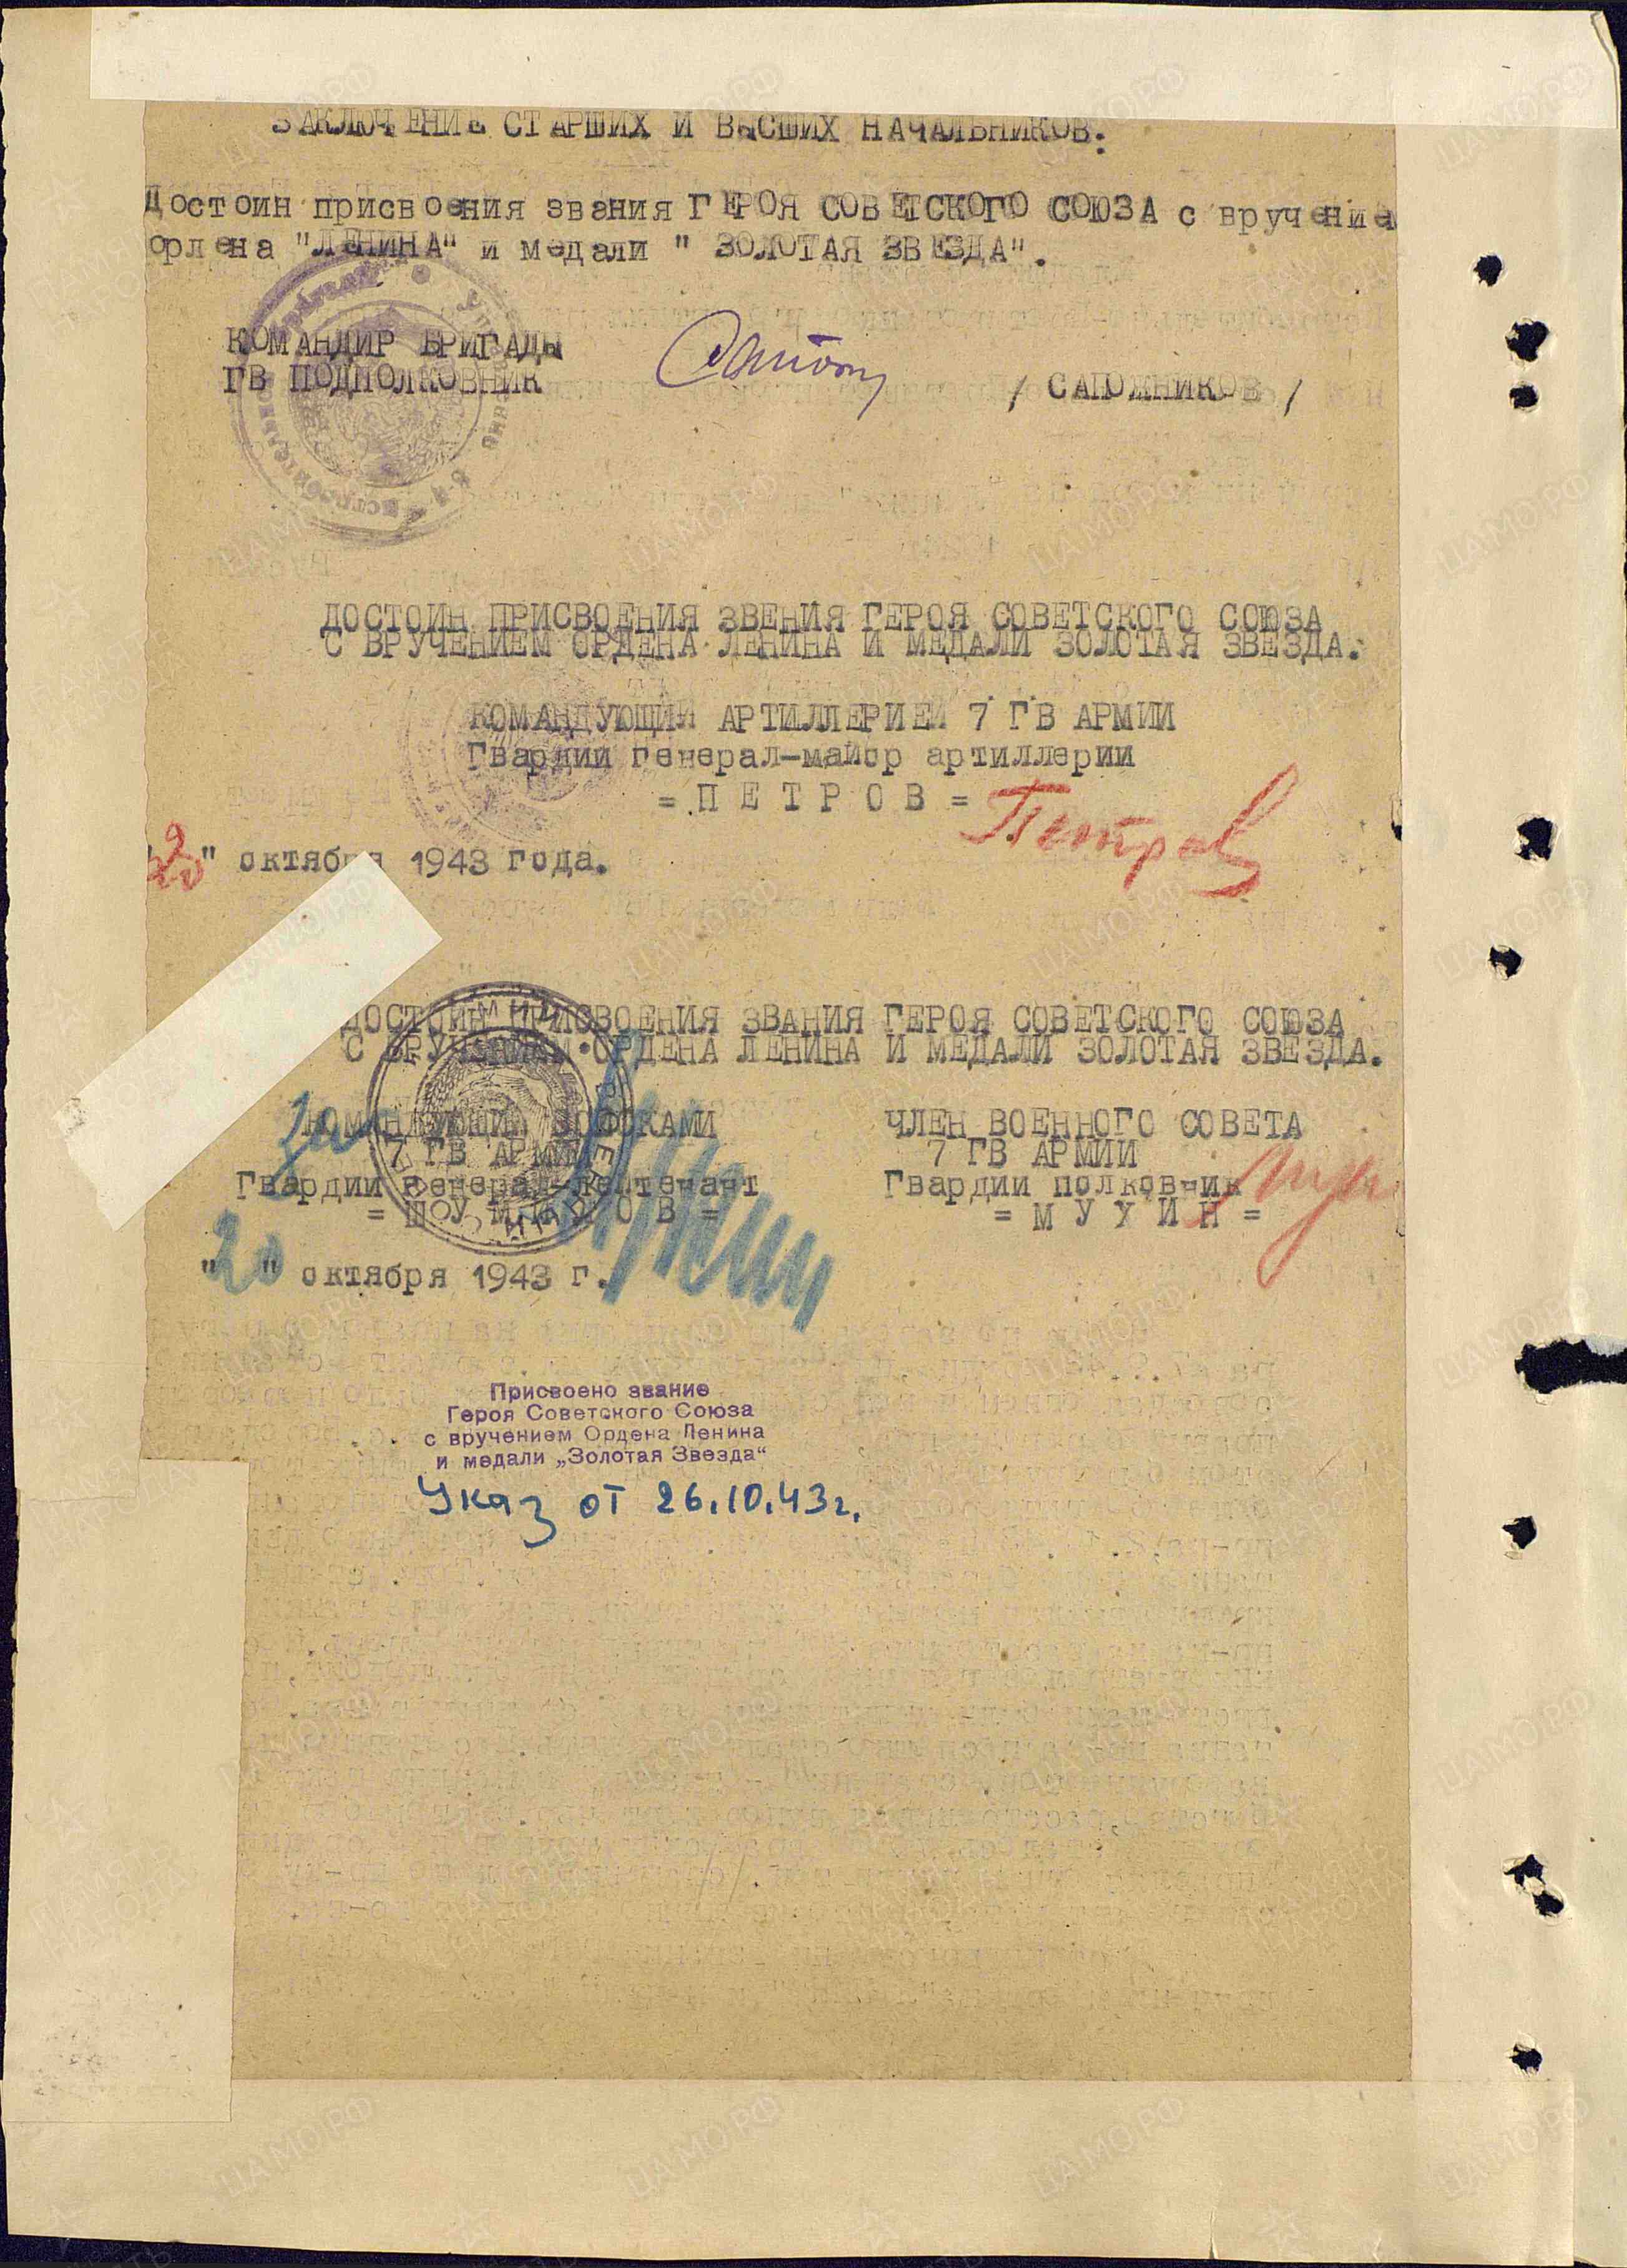 ЗАКЛЮЧЕНИЕ СТАРШИХ И ВЫСШИХ НАЧАЛЬНИКОВ.
Достоин присвоения звания ГЕРОЯ СОВЕТСКОГО СОЮЗА с вручение
орлена "ЛЕНИНА" и медали " ЗОЛОТАЯ ЗВЕЗДА".
КОМАНДИР БРИГАДЫ
ГВ ПОДПОЛКОВНИК / САПОЖНИКОВ /
ДОСТОИН ПРИСВОЕНИЯ ЗВЕНИЯ ГЕРОЯ СОВЕТСКОГО СОЮЗА
С ВРУЧЕНИЕМ ОРДЕНА ЛЕНИНА И МЕДАЛИ ЗОЛОТАЯ ЗВЕЗДА.
КОМАНДУЮЩИЙ АРТИЛЛЕРИЕЙ 7 ГВ АРМИИ
Гвардии генерал-майор артиллерии
= П Е Т Р О В = Петров
" октября 1943 года.
ДОСТОИН ПРИСВОЕНИЯ ЗВАНИЯ ГЕРОЯ СОВЕТСКОГО СОЮЗА
С ВРУЧЕНИЕМ ОРДЕНА ЛЕНИНА И МЕДАЛИ ЗОЛОТАЯ ЗВЕЗДА.
за КОМАНДУЮЩИЙ ВОЙСКАМИ ЧЛЕН ВОЕННОГО СОВЕТА
7 ГВ АРМИИ 7 ГВ АРМИИ
Гвардии генерал-лейтенант Гвардии полковник
= Ш У М И Л О В = = М У Х И Н =
"20" октября 1943 г.
Присвоено звание
Героя Советского Союза
с вручением Ордена Ленина
и медали „Золотая Звезда“
Указ от 26.10.43г.